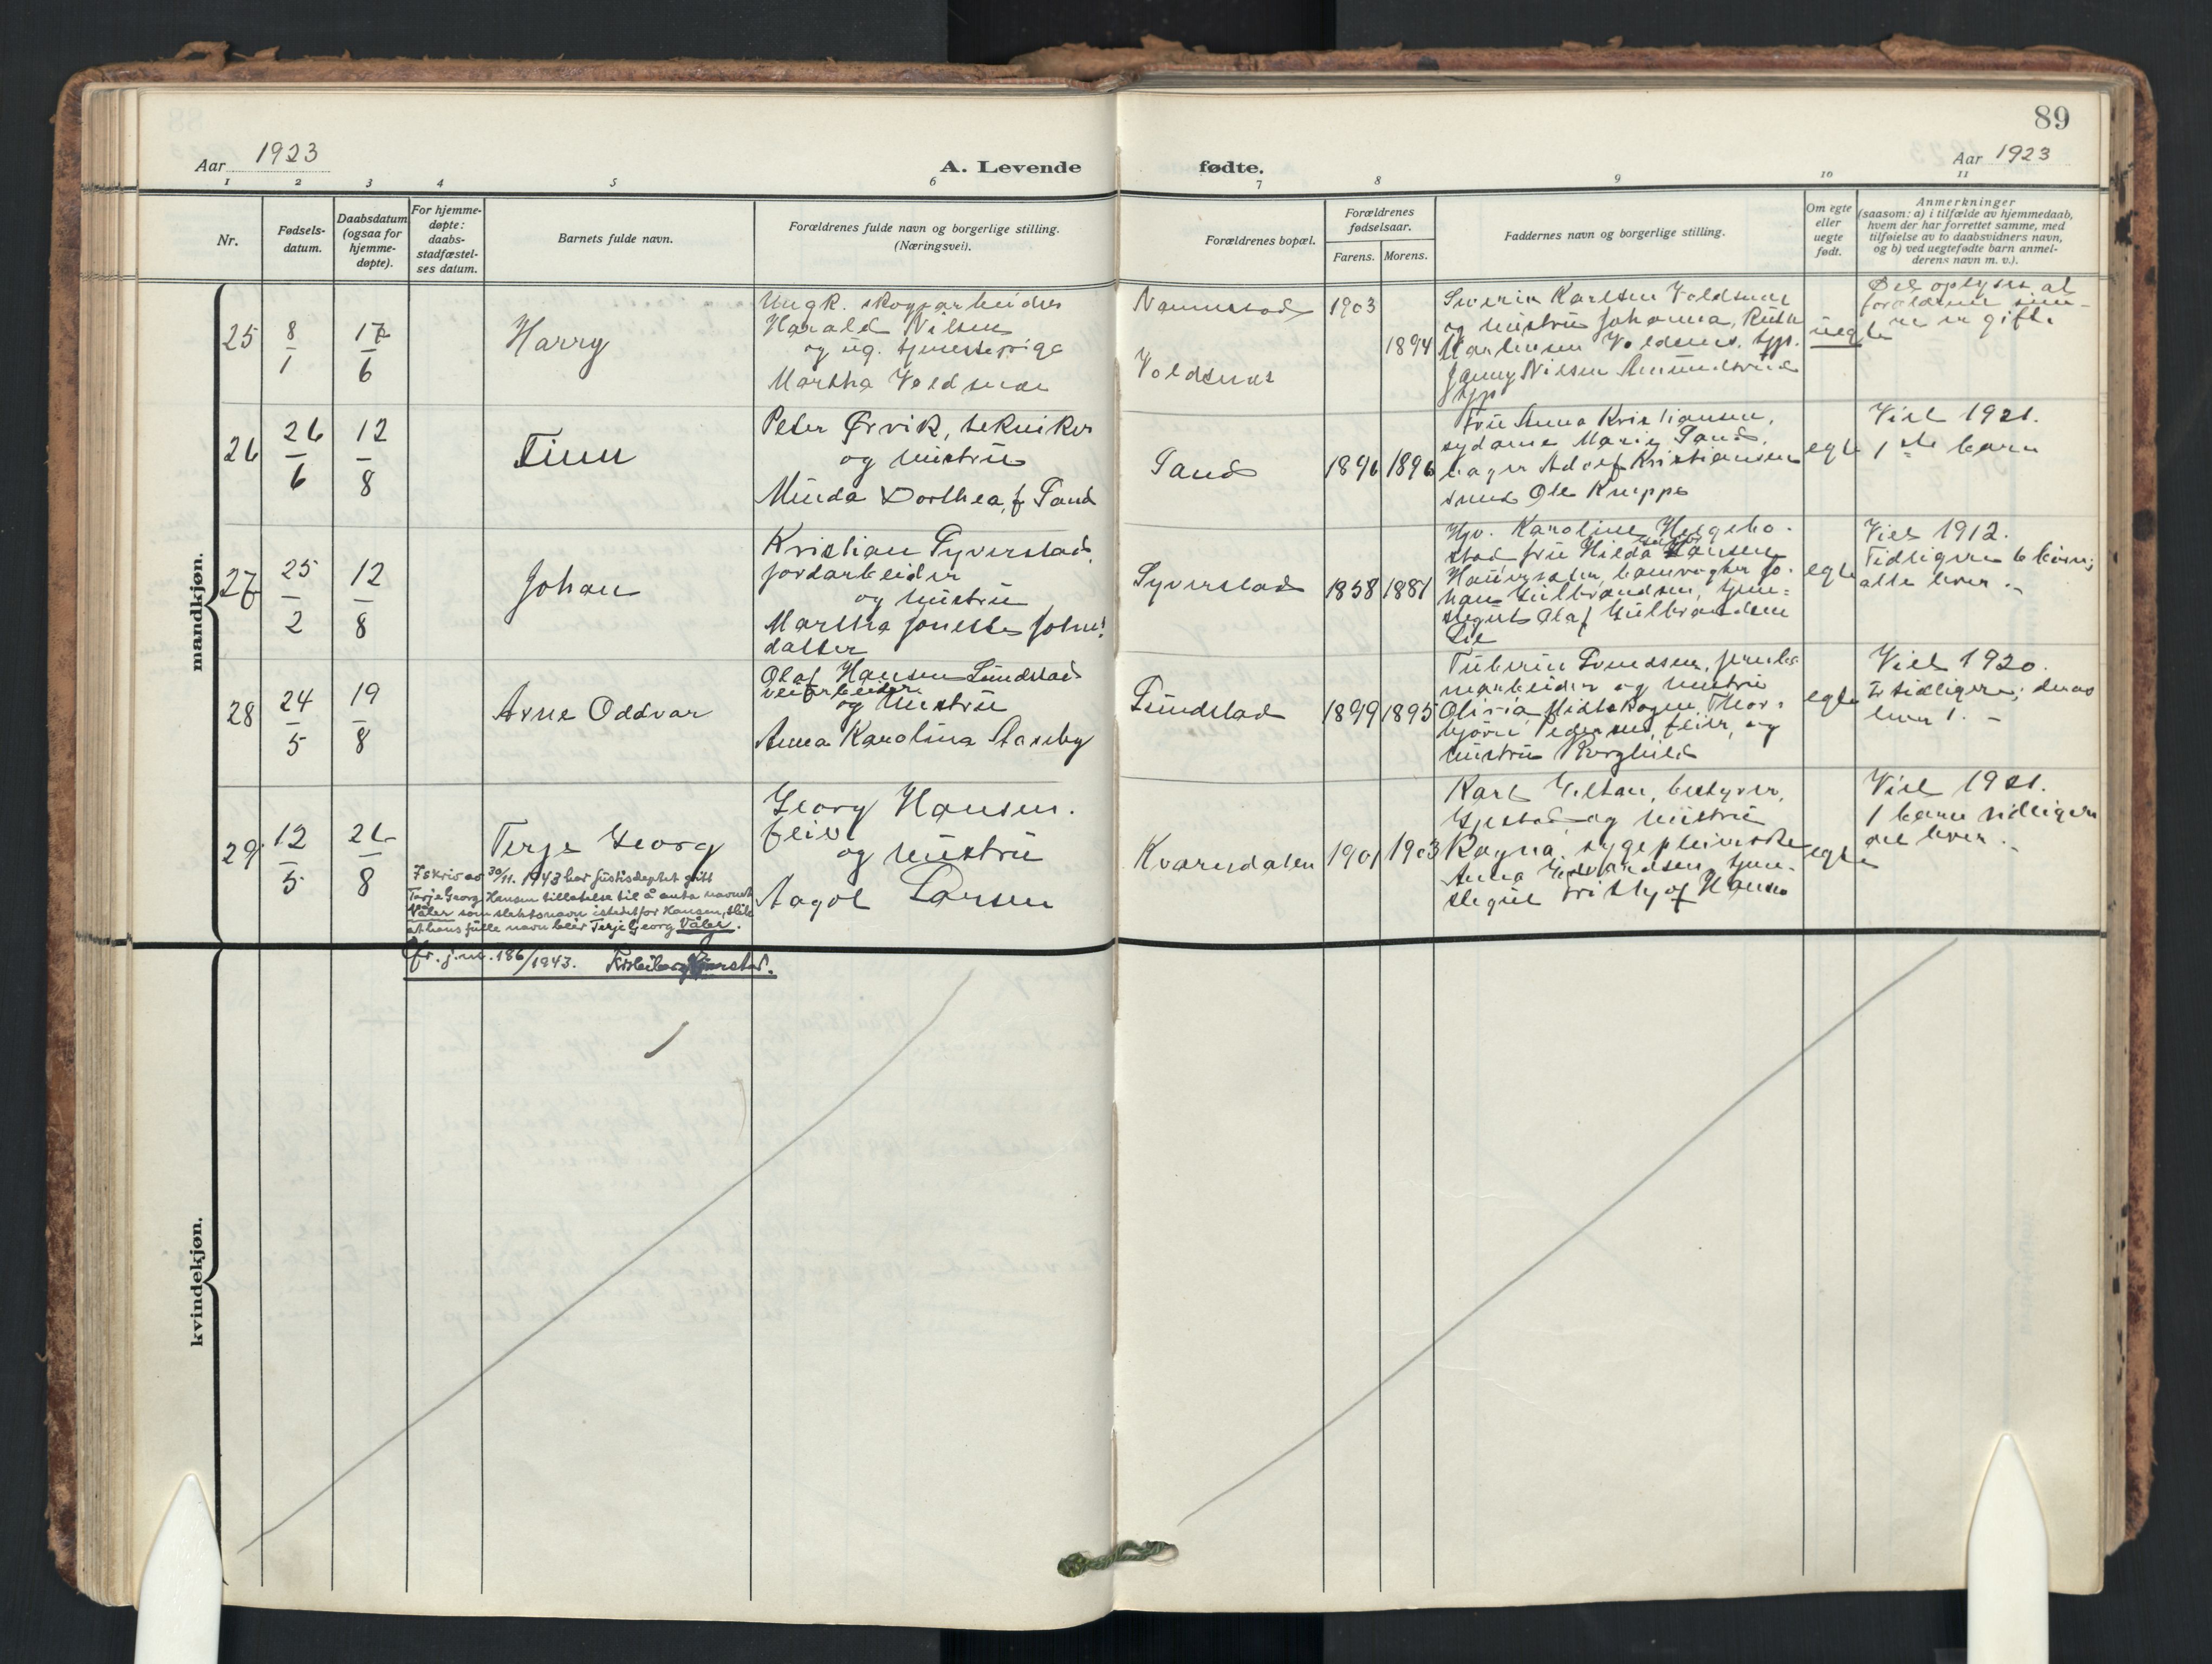 89
Aar 1923
A. Levende fødte.
Aar 1923
1 2 3 4 5 6 7 8 9 10 11
Nr.
Fødsels-
datum.
Daabsdatum
(ogsaa for
hjemme-
døpte).
For hjemme-
døpte:
daabs-
stadfæstel-
ses datum.
Barnets fulde navn.
Forældrenes fulde navn og borgerlige stilling.
(Næringsvei).
Forældrenes bopæl.
Forældrenes
fødselsaar.
Farens. Morens.
Faddernes navn og borgerlige stilling.
Om egte
eller
uegte
født.
Anmerkninger
(saasom: a) i tilfælde av hjemmedaab,
hvem der har forrettet samme, med
tilføielse av to daabsvidners navn,
og b) ved uegtefødte barn anmel-
derens navn m. v.).
mandkjøn.
25
8/1
17/6
Harry
Ungk. skogsarbeider
Harald Nilsen
og ug. tjenestepige
Martha Voldsnes
Nannestad
Voldsnes
1903
1894
Severin Karlsen Voldsnes
og hustru Johanna, Ruth
Martinsen Voldsnes, tjp.
Jenny Nilsen Amundsrud
tjp
uegte
Det oplyses at
forældrene senere
er gifte
26
26/6
12/8
Finn
Peter Ørvik, tekniker
og hustru
Minda Dorthea, f. Sand
Sand
1896 1896
Fru Anna Kristiansen,
sydame Marie Sand,
bager Adolf Kristiansen
smed Ole Knuppe
egte
Viet 1921.
1ste barn
27
25/2
12/8
Johan
Kristian Syverstad,
jordarbeider
og hustru
Martha Jonette Johns-
datter
Syverstad
1858 1881
Hjv. Karoline
stad fru Hilda Hansen
han Gulbrandsen, tjene-
stegut Olaf Gulbrandsen
Lie
egte
Viet 1912.
Tidligere 6 børn;
alle lever.-
28
24/5
19/8
Arne Oddvar
Olaf Hansen Sundstad
veiarbeider
og hustru
Anna Karolina Aaseby
Sundstad
1899 1895
Svendsen, jernba-
nearbeider og hustru
Olivia Midtskogen, Thor-
bjørn Pedersen, feier, og
hustru Borghild
egte
Viet 1920.
2 tidligere; deras
lever 1. -
29
12/5
26/8
Terje Georg
I skriv av 30/11. 1943 har Justisdeptet gitt
Terje Georg Hansen tillatelse til å anta navnet
Våler som slektsnavn istedetfor Hansen, slik
at hans fulle navn blir Terje Georg Våler.
Cfr. j.nr. 186/1943.
Georg Hansen.
feier
og hustru
Aagot Larsen
Kværndalen
1901 1903
Karl bestyrer,
og hustru
Ragna, sygepleierske
Anna tjene-
stegut Fritjof Hansen
egte
Viet 1921.
1 barn tidligere
det lever.-
kvindekjøn.